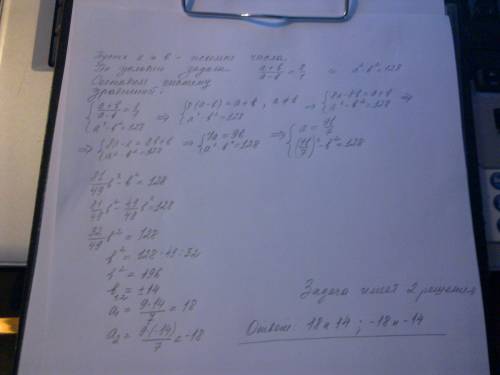 Пусть a и b - искомые числа.
По условию задачи (a+b)/(a-b) = 8/1 и a²-b²=128
Составим систему
уравнений:
{(a+b)/(a-b) = 8/1 ; a²-b²=128 ⇒ {8(a-b)=a+b, a≠b ; a²-b²=128 ⇒ {8a-8b=a+b ; a²-b²=128 ⇒
⇒ {8a-a=8b+b ; a²-b²=128 ⇒ {7a=9b ; a²-b²=128 ⇒ {a=9b/7 ; (9b/7)²-b²=128
81/49 b²-b²=128
81/49 b²-49/49 b²=128
32/49 b²=128
b²=128·49:32
b²=196
b₁,₂=±14
a₁=9·14/7=18
a₂=9·(-14)/7=-18
Задача имеет 2 решения
Ответ: 18 и 14 ; -18 и -14